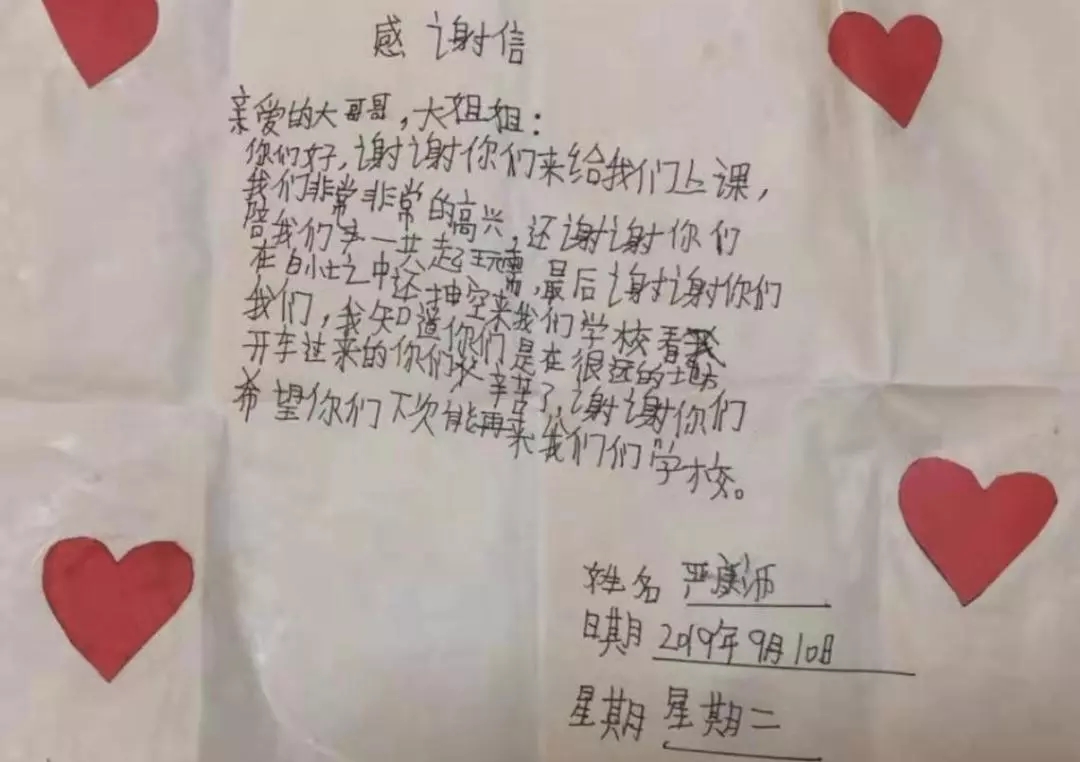 感谢信
亲爱的大哥哥,大姐姐:
你们好,谢谢你们来给我们上课,
我们非常非常的高兴,还谢谢你们
陪我们一共起玩需,最后谢谢你们
在白忙之中还抽空来我们学校看
我们,我知道你们是在很远的地方
开车过来的你们辛苦了,谢谢你们
希望你们下次能再来我们们学校。
姓名 严
日期 2019年9月10日
星期 星期二